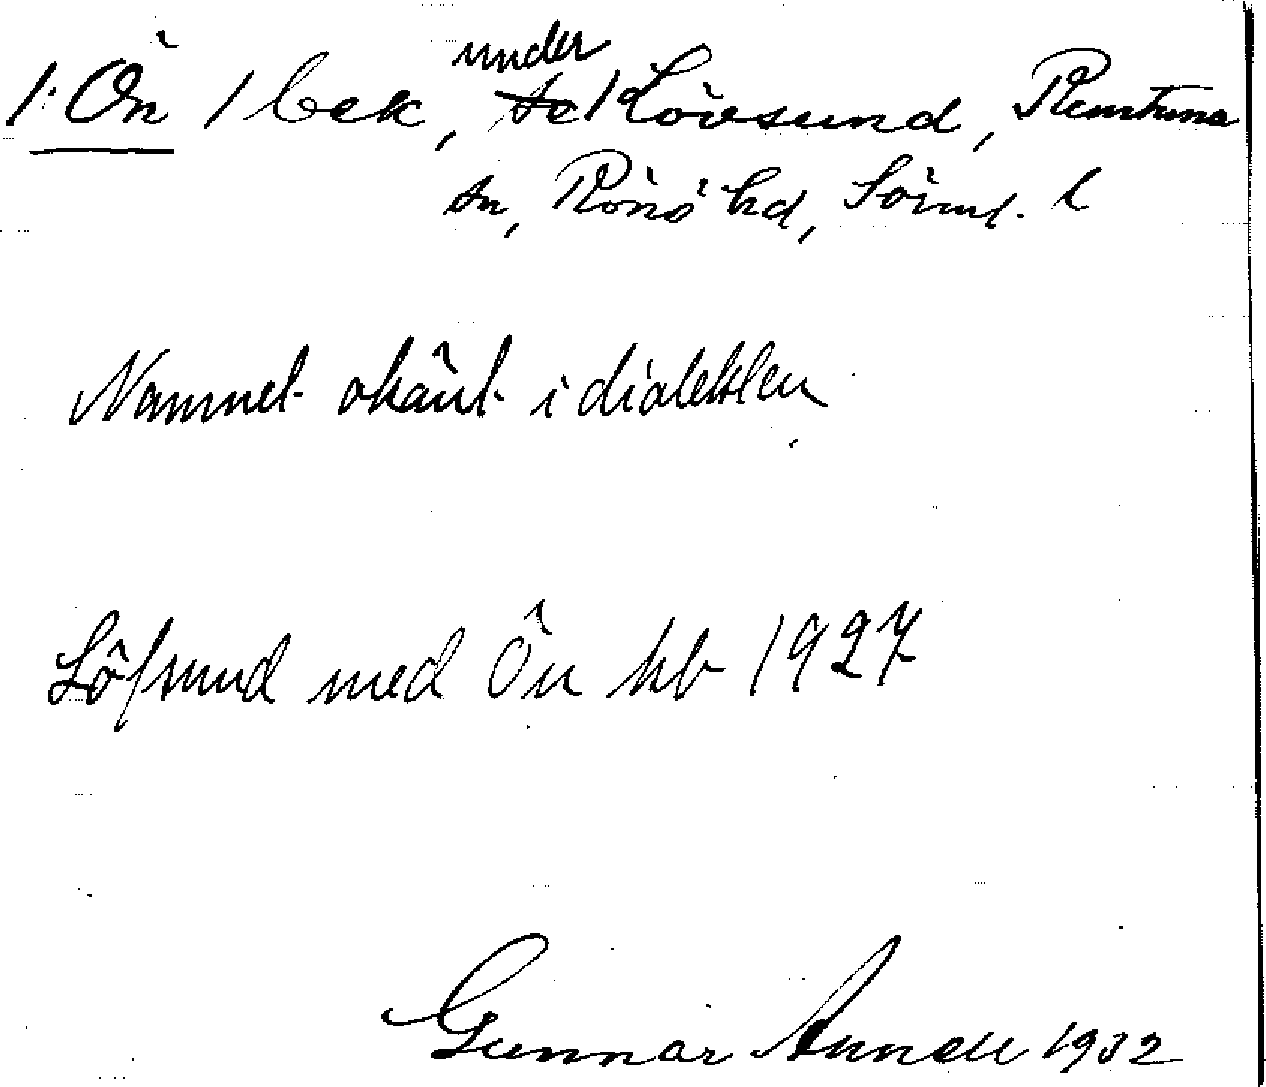 under
1: Ön 1 bek, se 1 Lövsund, Runtuna
sn, Rönö hd, Sörml. l
Namnet okänt i dialekten
Löfsund med Ön kb 1927
Gunnar Annell 1932